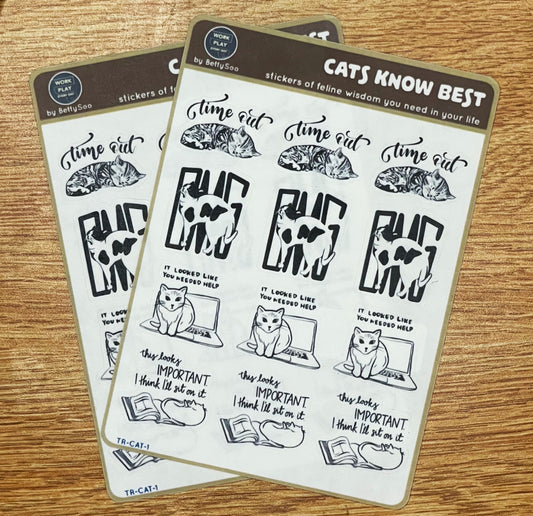 WORK
PLAY
by BettySoo
CATS KNOW BEST
stickers of feline wisdom you need in your life
time out time out time out
IT LOOKED LIKE
YOU NEEDED HELP
IT LOOKED LIKE
YOU NEEDED HELP
IT LOOKED LIKE
YOU NEEDED HELP
this looks
IMPORTANT.
I think I'll sit on it
this looks
IMPORTANT.
I think I'll sit on it
this looks
IMPORTANT.
I think I'll sit on it
TR-CAT-1
WORK
PLAY
by BettySoo
CATS
stickers of
time
IT LOO
YOU NE
this lo
I think
TR-CAT-1